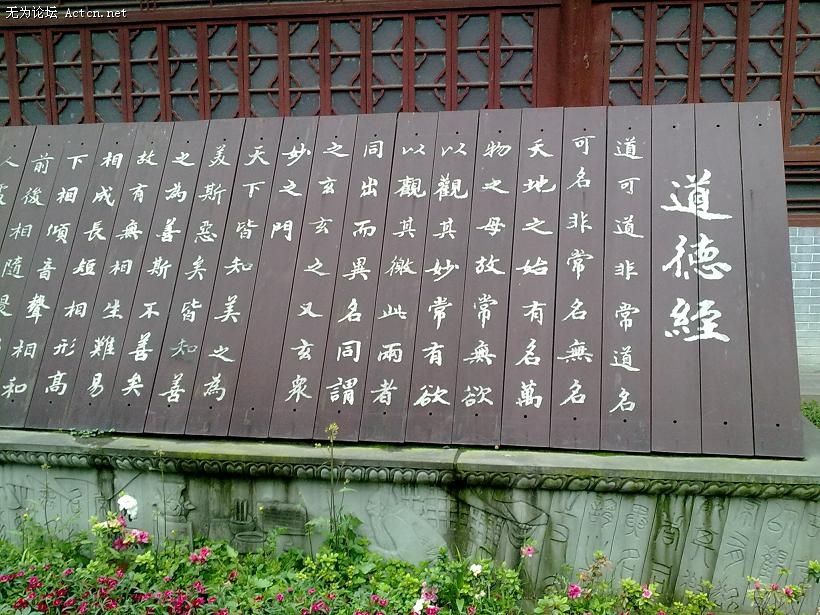 无为论坛 Actcn.net
道德經
道可道非常道名
可名非常名無名
天地之始有名萬
物之母故常無欲
以觀其妙常有欲
以觀其徼此兩者
同出而異名同謂
之玄玄之又玄衆
妙之門
天下皆知美之為
美斯惡矣皆知善
之為善斯不善矣
故有無相生難易
相成長短相形高
下相傾音聲相和
前後相隨是
人